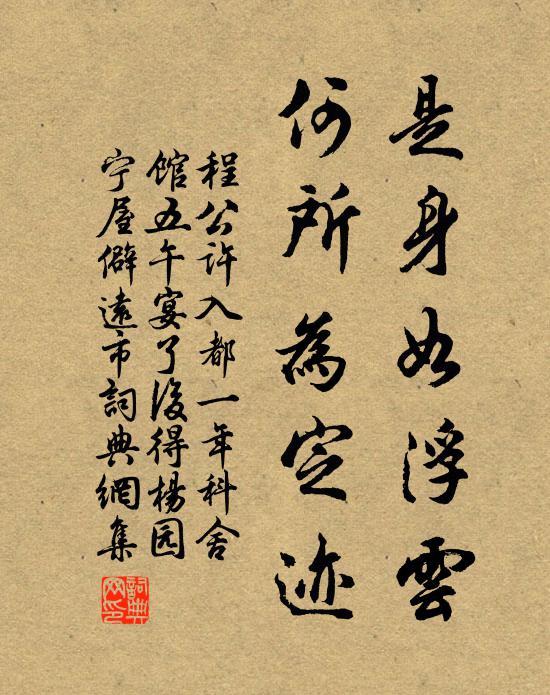 是身如浮雲
何所為定迹
程公許入都一年科舍
館五午宴了後得楊园
宁屋僻遠市詞典網集
詞典网印